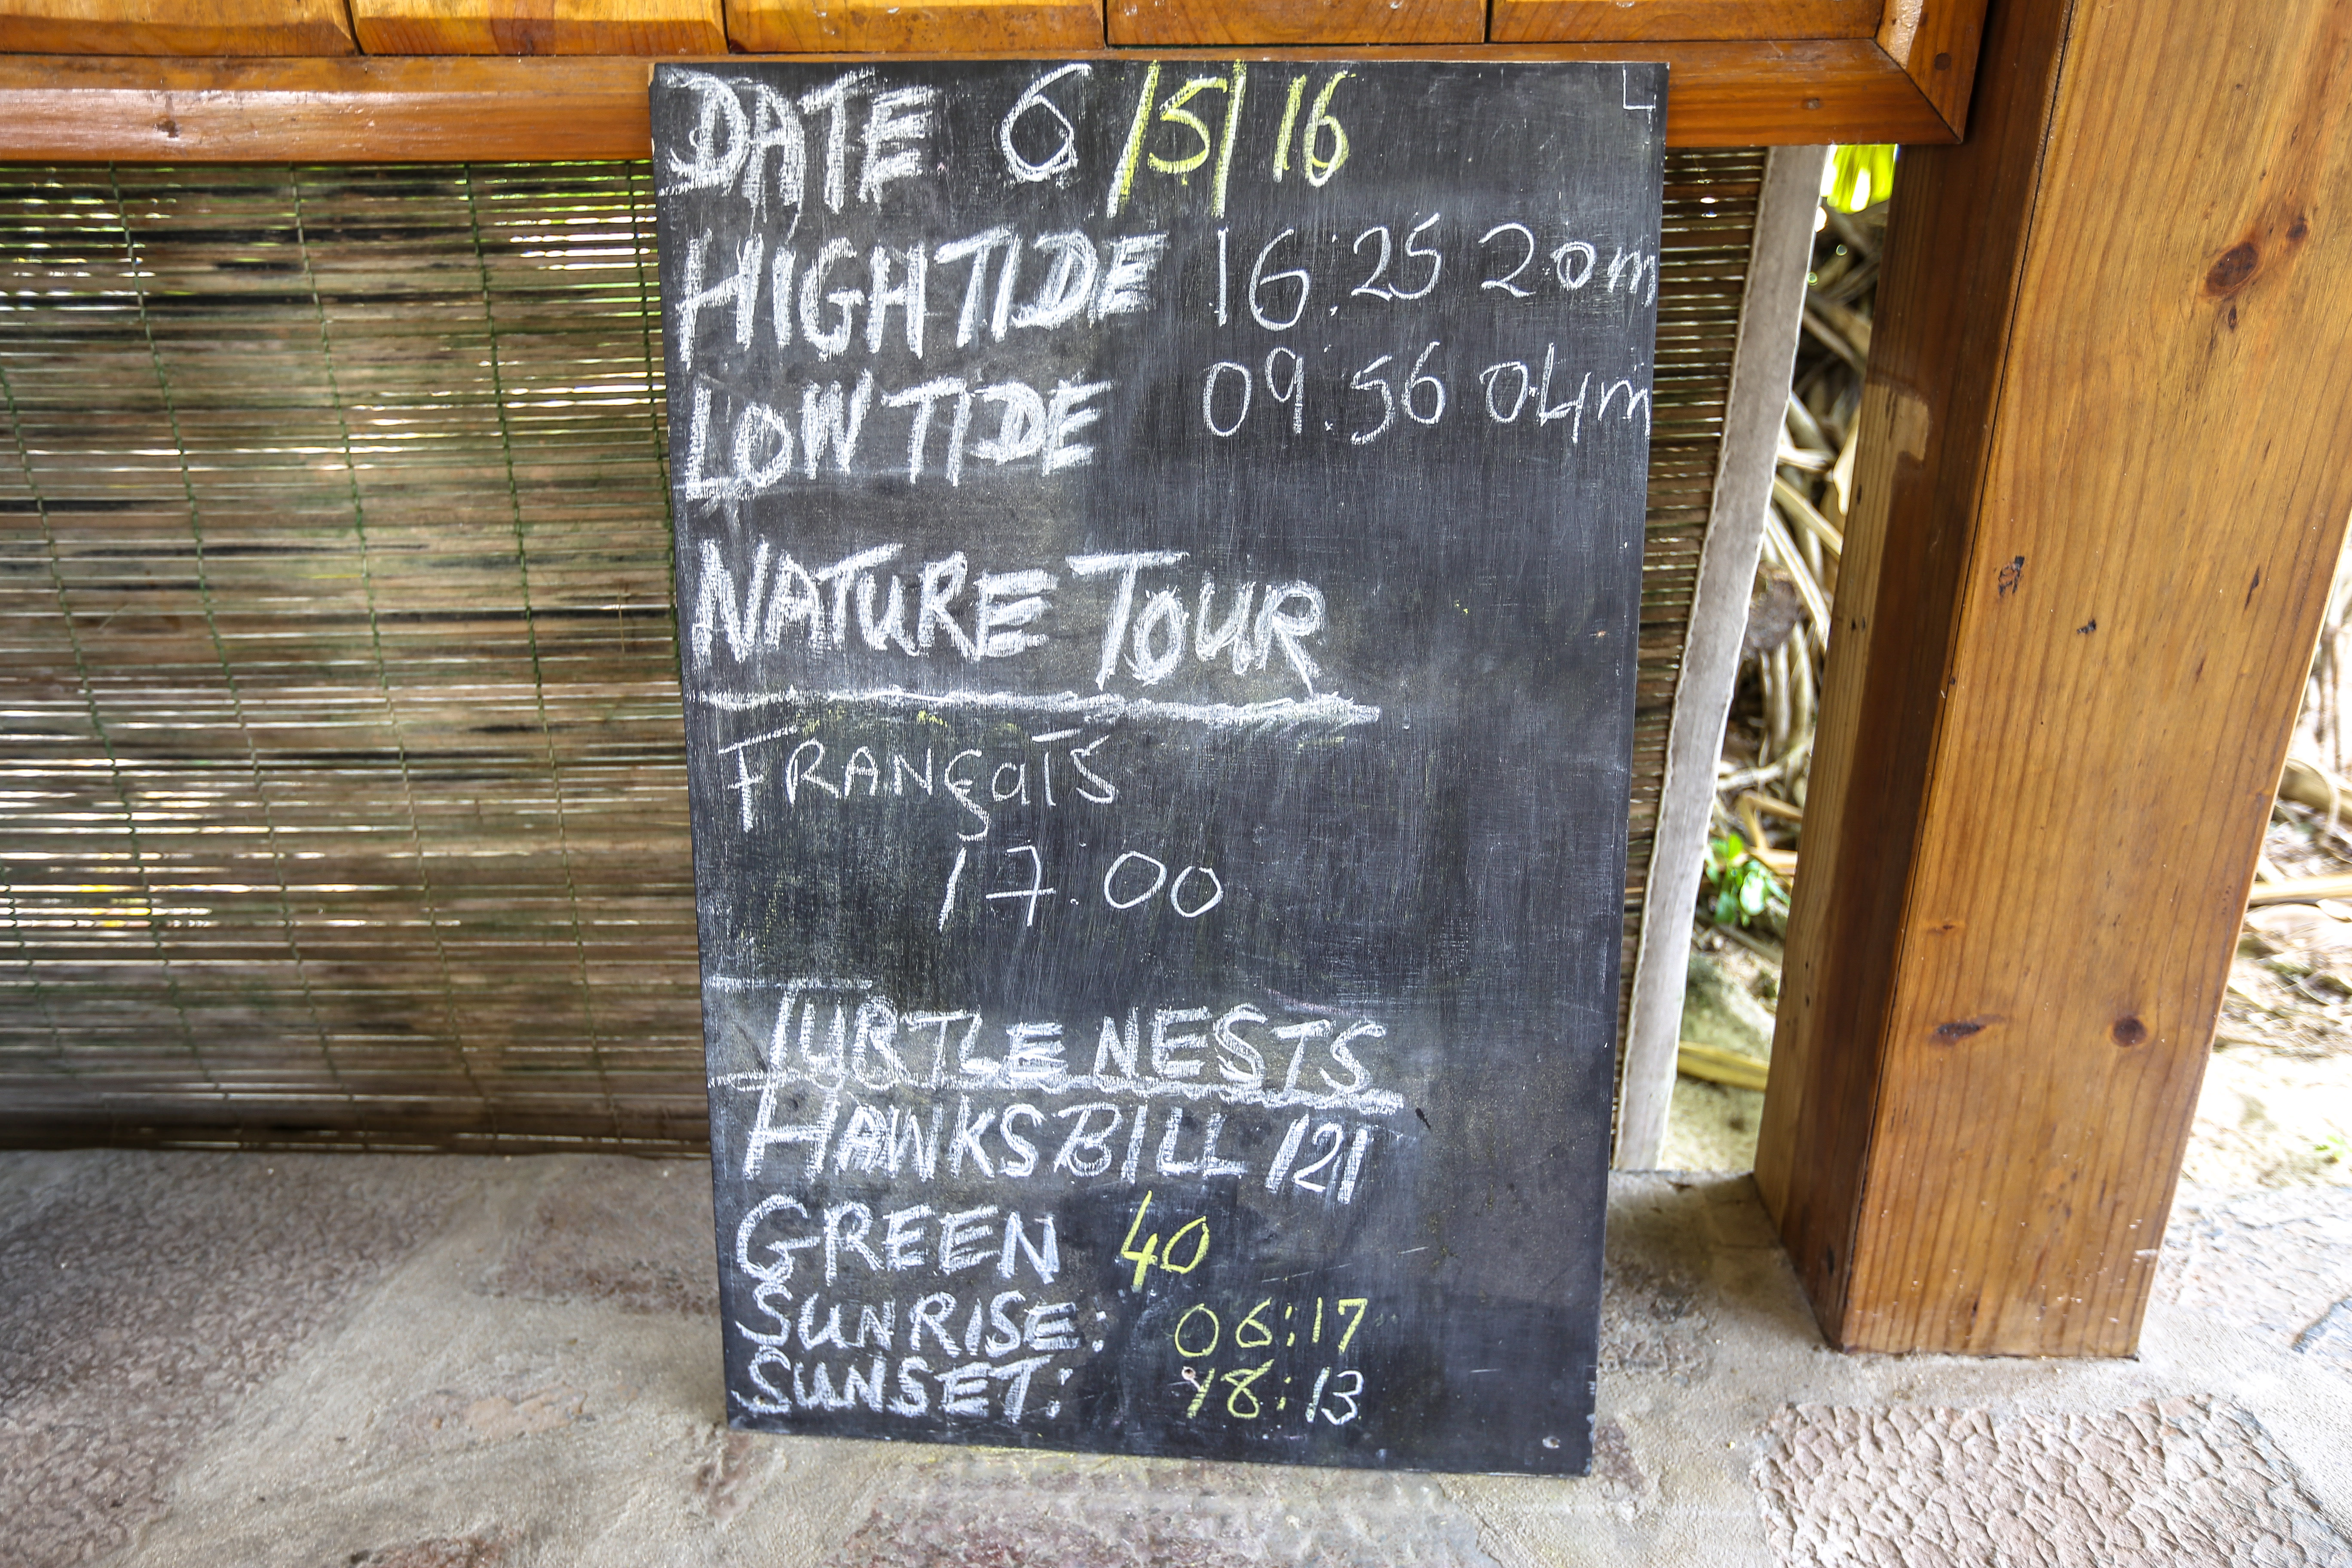 DATE 6/5/16
HIGH TIDE 16:25 2.0m
LOW TIDE 09:56 0.4m
NATURE TOUR
FRANÇaIS
17:00
TURTLE NESTS
HAWKSBILL 121
GREEN 40
SUNRISE: 06:17
SUNSET: 18:13